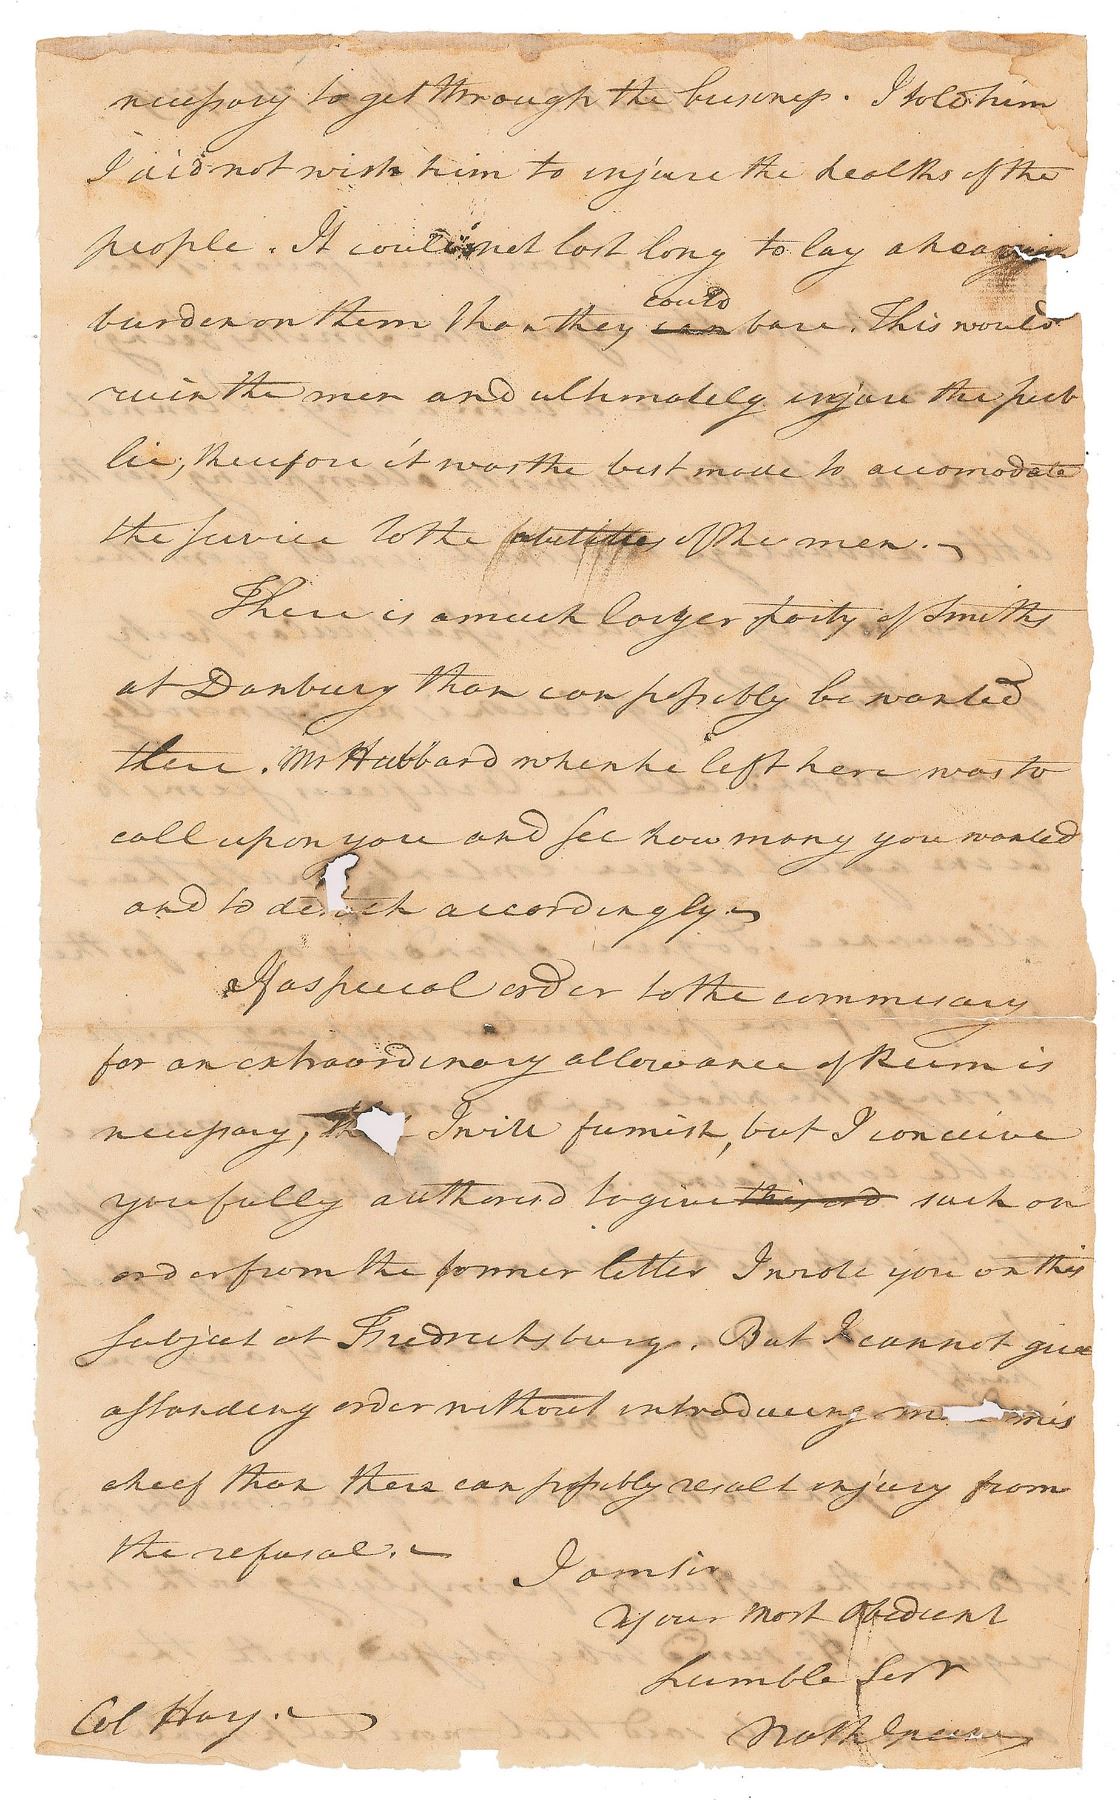 necessary to get through the business. I told him
I did not wish him to injure the healths of the
people. It could not last long to lay a heavier
burden on them than they can could bare. This would
ruin the men and ultimately injure the pub
lic; therefore it was the best mode to accomodate
the service to the abilities of the men.
There is a much larger party of Smiths
at Danbury than can possibly be wanted
there. Mr Hubbard when he left here was to
call upon you and see how many you wanted
and to detach accordingly.
If a special order to the commesary
for an extraordinary allowance of Rum is
necessary, I will furnish, but I conceive
you fully authorisd to give this ord such an
order from the former letter I wrote you on this
subject at Fredricksburg. But I cannot give
a standing order without introducing mis
cheef than there can possibly result injury from
the refusal.
I am sir
Your most obedient
humble Servt
Nath Greene
Col Hay.